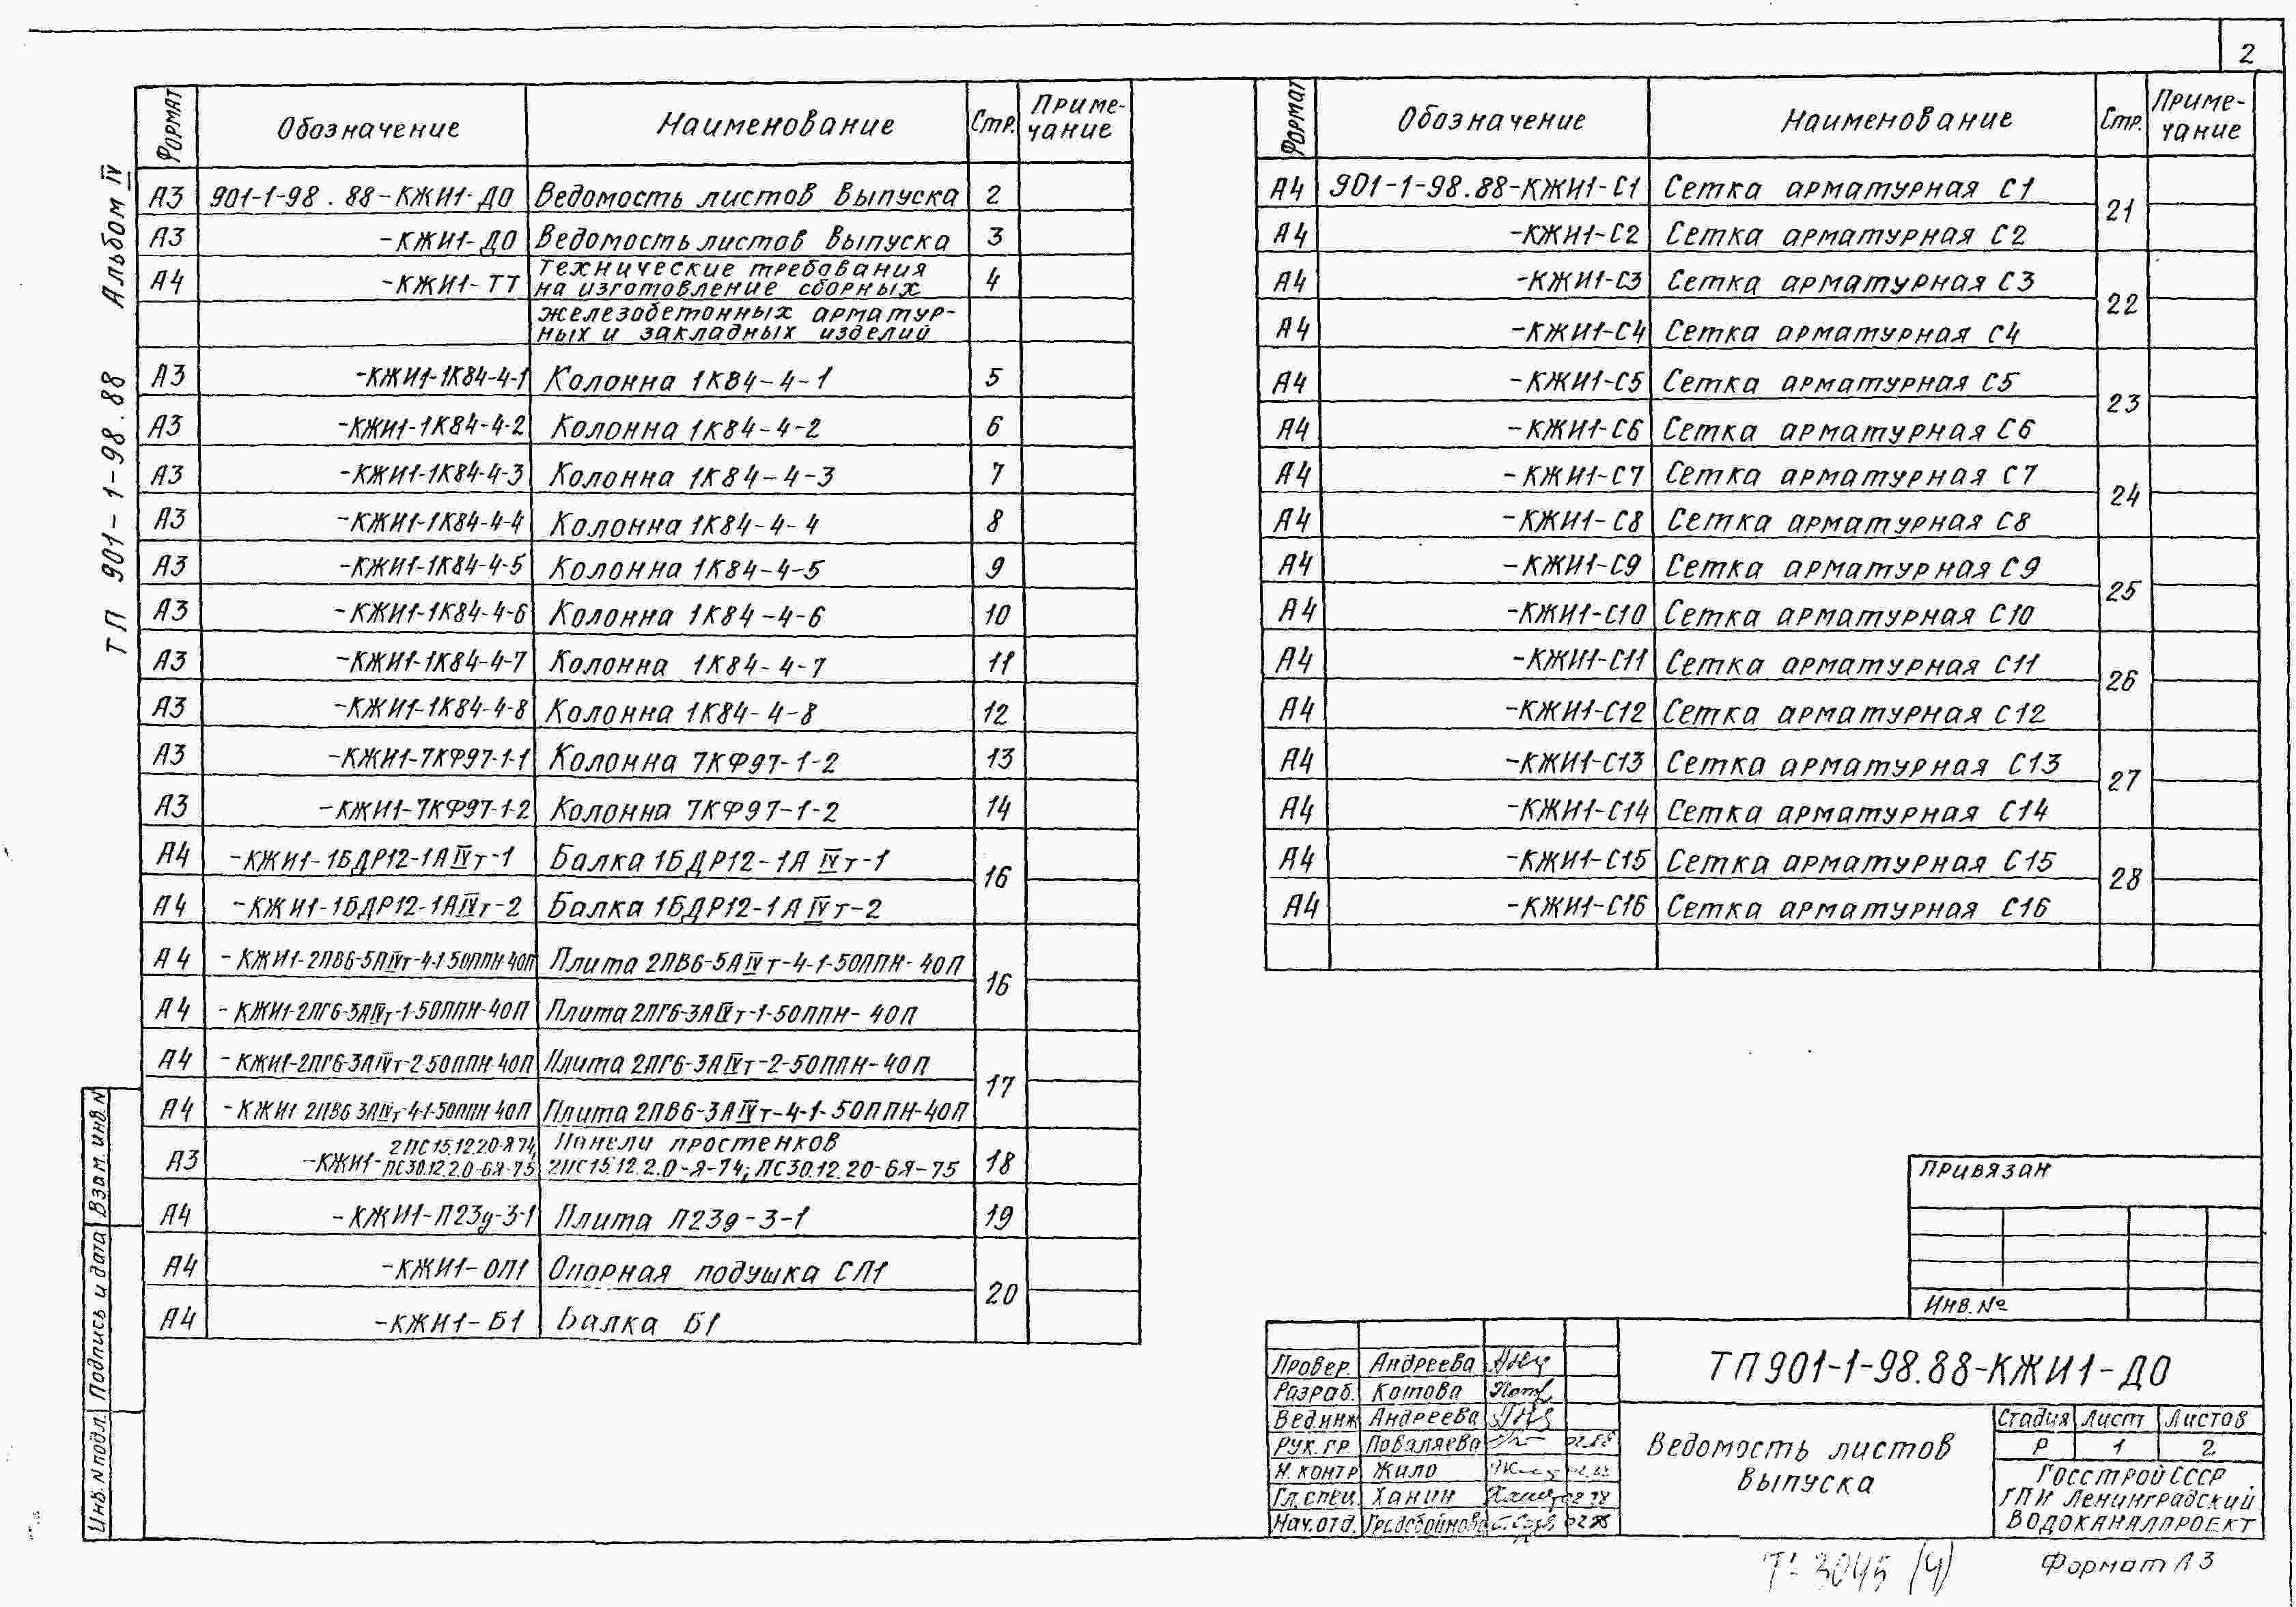 2
ТП 901-1-98.88 Альбом IV
Формат Обозначение Наименование Стр. Приме-
чание
А3 901-1-98.88-КЖИ1-ДО Ведомость листов выпуска 2
А3 -КЖИ1-ДО Ведомость листов выпуска 3
А4 -КЖИ1-ТТ Технические требования 4
на изготовление сборных
железобетонных арматур-
ных и закладных изделий
А3 -КЖИ1-1К84-4-1 Колонна 1К84-4-1 5
А3 -КЖИ1-1К84-4-2 Колонна 1К84-4-2 6
А3 -КЖИ1-1К84-4-3 Колонна 1К84-4-3 7
А3 -КЖИ1-1К84-4-4 Колонна 1К84-4-4 8
А3 -КЖИ1-1К84-4-5 Колонна 1К84-4-5 9
А3 -КЖИ1-1К84-4-6 Колонна 1К84-4-6 10
А3 -КЖИ1-1К84-4-7 Колонна 1К84-4-7 11
А3 -КЖИ1-1К84-4-8 Колонна 1К84-4-8 12
А3 -КЖИ1-7КФ97-1-1 Колонна 7КФ97-1-2 13
А3 -КЖИ1-7КФ97-1-2 Колонна 7КФ97-1-2 14
А4 -КЖИ1-1БДР12-1АIVт-1 Балка 1БДР12-1АIVт-1
16
А4 -КЖИ1-1БДР12-1АIVт-2 Балка 1БДР12-1АIVт-2
А4 -КЖИ1-2ПВ6-5АIVт-4-1-50ППН-40П Плита 2ПВ6-5АIVт-4-1-50ППН-40П
16
А4 -КЖИ1-2ПГ6-3АIVт-1-50ППН-40П Плита 2ПГ6-3АIVт-1-50ППН-40П
А4 -КЖИ1-2ПГ6-3АIVт-2-50ППН-40П Плита 2ПГ6-3АIVт-2-50ППН-40П
17
А4 -КЖИ1-2ПВ6-3АIVт-4-1-50ППН-40П Плита 2ПВ6-3АIVт-4-1-50ППН-40П
2ПС15.12.20-Я74, Панели простенков
А3 -КЖИ1-ПС30.12.2.0-6Я-75 2ПС15.12.2.0-Я-74; ПС30.12.20-6Я-75 18
А4 -КЖИ1-П23д-3-1 Плита П23д-3-1 19
А4 -КЖИ1-ОП1 Опорная подушка СП1
20
А4 -КЖИ1-Б1 Балка Б1
Формат Обозначение Наименование Стр. Приме-
чание
А4 901-1-98.88-КЖИ1-С1 Сетка арматурная С1
21
А4 -КЖИ1-С2 Сетка арматурная С2
А4 -КЖИ1-С3 Сетка арматурная С3
22
А4 -КЖИ1-С4 Сетка арматурная С4
А4 -КЖИ1-С5 Сетка арматурная С5
23
А4 -КЖИ1-С6 Сетка арматурная С6
А4 -КЖИ1-С7 Сетка арматурная С7
24
А4 -КЖИ1-С8 Сетка арматурная С8
А4 -КЖИ1-С9 Сетка арматурная С9
25
А4 -КЖИ1-С10 Сетка арматурная С10
А4 -КЖИ1-С11 Сетка арматурная С11
26
А4 -КЖИ1-С12 Сетка арматурная С12
А4 -КЖИ1-С13 Сетка арматурная С13
27
А4 -КЖИ1-С14 Сетка арматурная С14
А4 -КЖИ1-С15 Сетка арматурная С15
28
А4 -КЖИ1-С16 Сетка арматурная С16
Инв. N подл. Подпись и дата Взам. инв. N
Привязан
Инв. №
Провер. Андреева
Разраб. Котова
Вед.инж Андреева
Рук. гр. Поваляева 02.88
Н. контр Жило 02.88
Гл. спец. Ханин
Нач. отд. 02.88
ТП 901-1-98.88-КЖИ1-ДО
Ведомость листов
выпуска
Стадия Лист Листов
Р 1 2
Госстрой СССР
ГПИ Ленинградский
Водоканалпроект
Т-3045 (4)
Формат А3